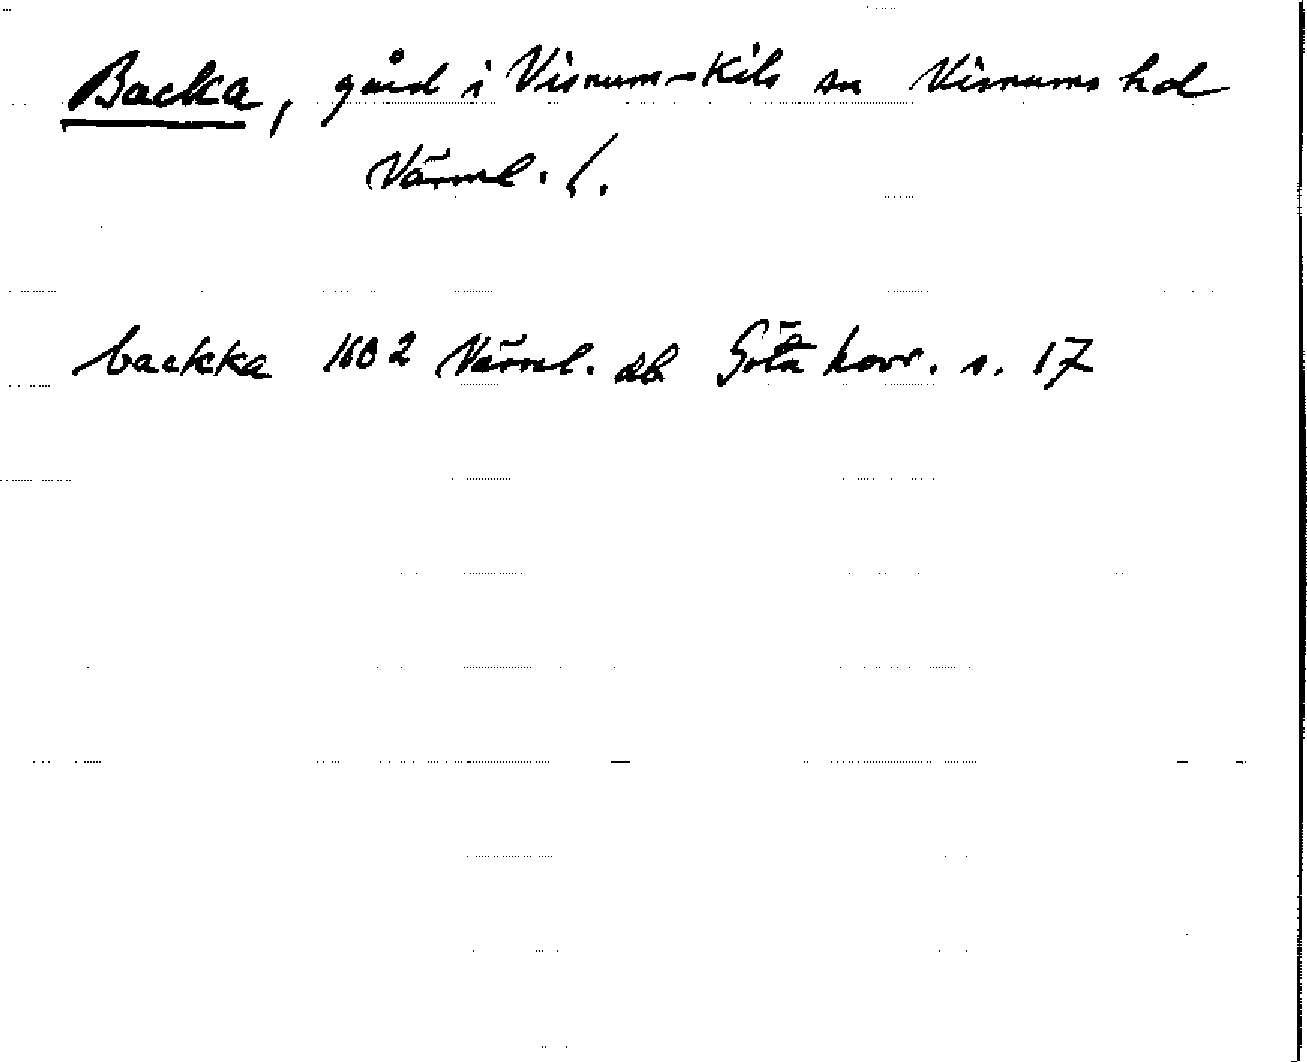 Backa, gård i Visnum-Kils sn Visnums hd
Värml. l.
backka 1602 Värml. db Göta hovr. s. 17